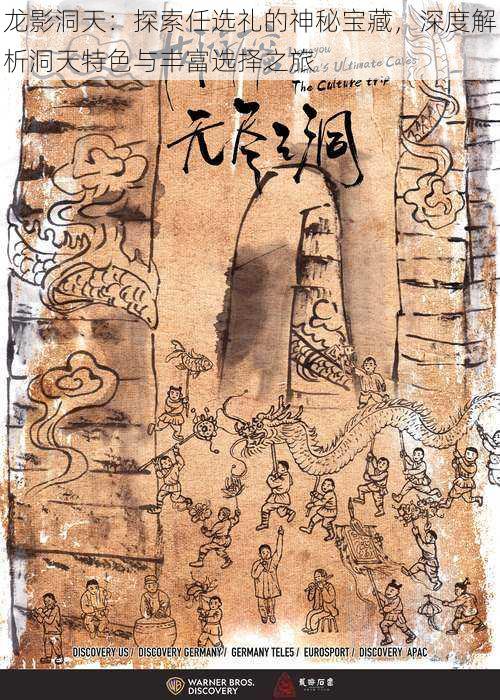 龙影洞天：探索任选礼的神秘宝藏，深度解
析洞天特色与丰富选择之旅
's Ultimate Caves
The Culture trip
无尽之洞
DISCOVERY US / DISCOVERY GERMANY / GERMANY TELE5 / EUROSPORT / DISCOVERY APAC
WARNER BROS.
DISCOVERY